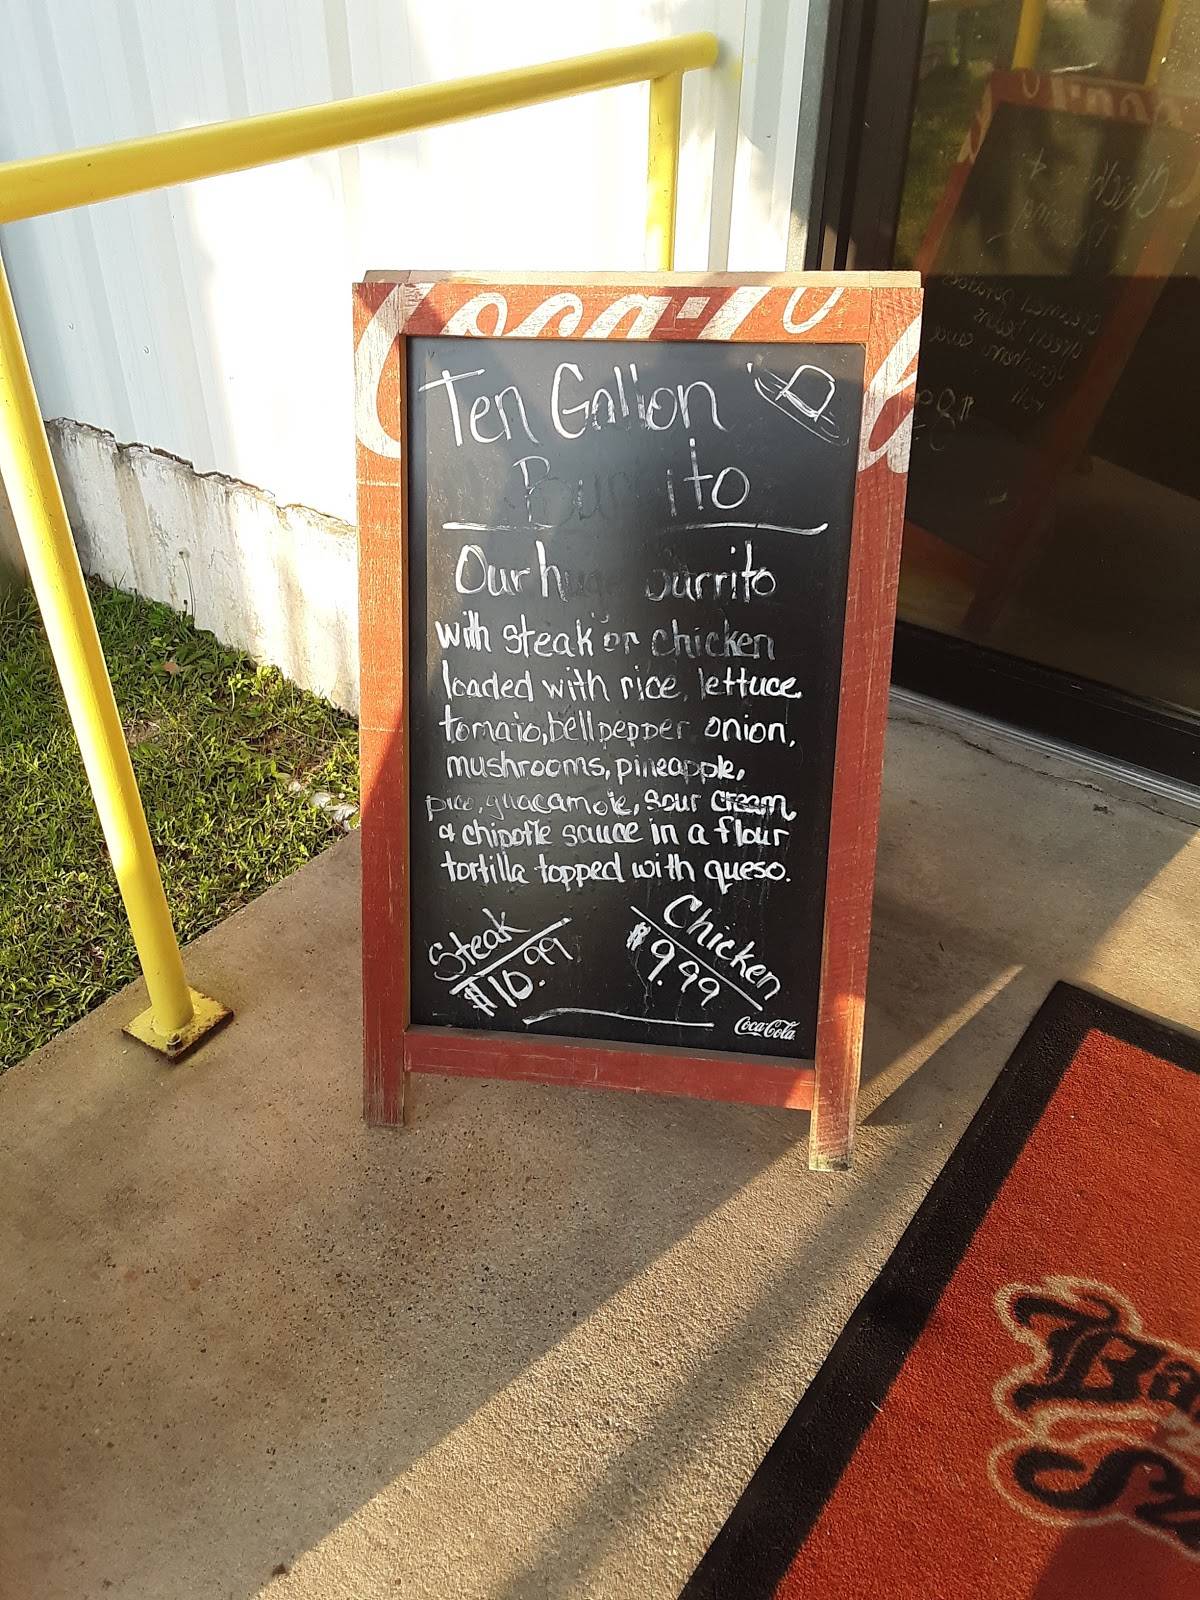 Coca-Co
Ten Gallon
Burrito
Our huge burrito
with steak or chicken
loaded with rice, lettuce
tomato, bell pepper, onion,
mushrooms, pineapple,
pico, guacamole, sour cream
& chipotle sauce in a flour
tortilla topped with queso.
Steak
$10.99
Chicken
$9.99
Coca-Cola
Ba